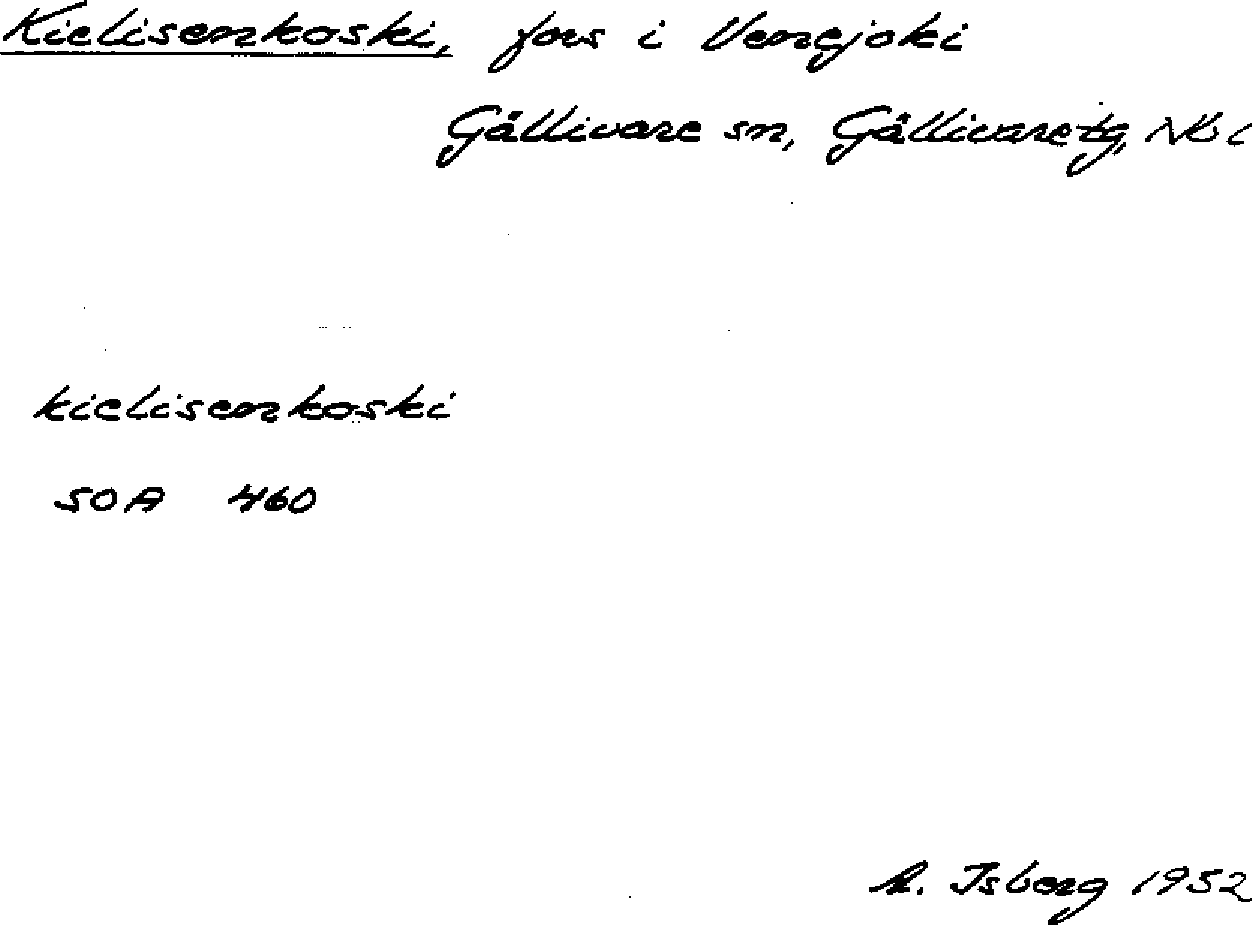 Kielisenkoski, fors i Venejoki
Gällivare sn, Gällivare tg, Nb l
kielisenkoski
SOA 460
A. Isberg 1952